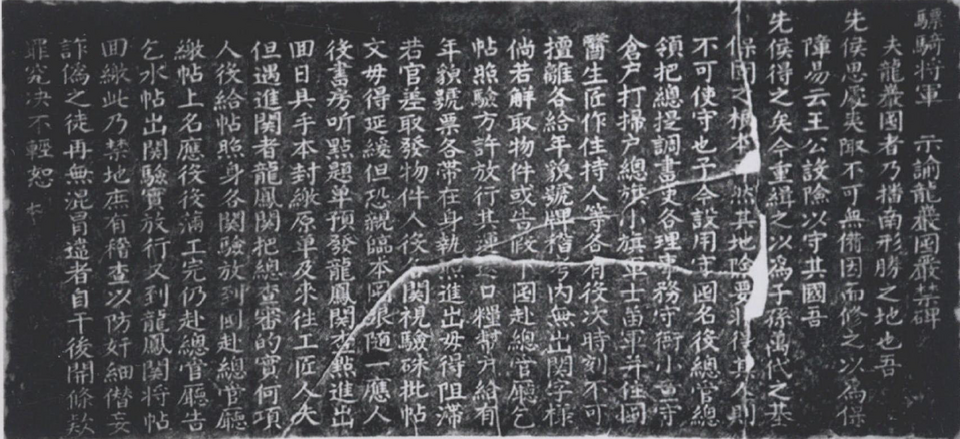 驃騎將軍　示諭龍巖囤嚴禁碑
夫龍巖囤者乃播南形勝之地也吾
先侯思處夷陬不可無備因而修之以為保
障易云王公設險以守其國吾
先侯得之矣今重緝之以為子孫萬代之基
保囤之根本 然其地險要 得其人則
不可使守也予今設用守囤名後總管總
領把總提調書吏各理 務守衙小 守
倉户打掃户總旗小旗軍士苗軍并住囤
醫生匠作住持人等各有役次時刻不可
擅離各給年貌號牌稽考內無出関字樣
倘若解取物件或告假下囤赴總管廳乞
帖照驗方許放行其 口糧 片給有
年貌號票各帶在身執照進出毋得阻滯
若官差取發物件人役 関視驗硃批帖
文毋得延緩但恐親臨本囤跟隨一應人
役書房听點題單預發龍鳳関查點進出
囬日具手本封繳原單及來往工匠人夫
但遇進関者龍鳳関把總查審的實何項
人後給帖照身各関驗放到囤赴總管廳
繳帖上名應役後滿工完仍赴總管廳告
乞水帖出関驗實放行又到龍鳳関將帖
囬繳此乃禁地庶有稽查以防奸細僣妄
詐偽之徒再無混冒違者自干後開條欵
罪究决不輕恕